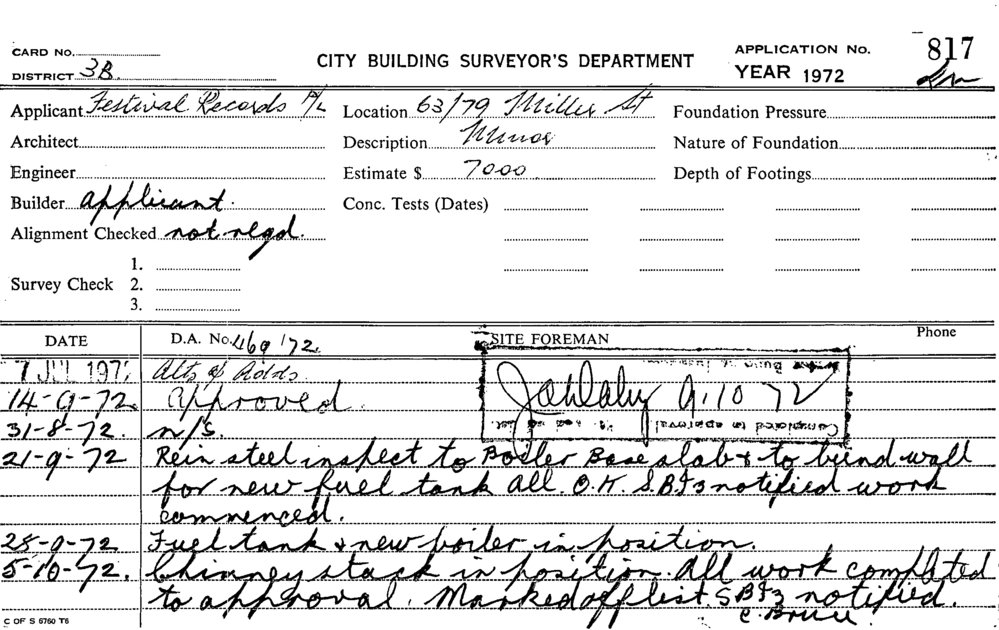 CARD NO.
DISTRICT 3B.
CITY BUILDING SURVEYOR'S DEPARTMENT
APPLICATION No. 817
YEAR 1972
Applicant Festival Records P/L
Location 63/79 Miller St
Foundation Pressure
Architect
Description Minor
Nature of Foundation
Engineer
Estimate $ 7000
Depth of Footings
Builder applicant.
Conc. Tests (Dates)
Alignment Checked not reqd.
1.
Survey Check 2.
3.
DATE
D.A. No. 469/72
SITE FOREMAN
Phone
7 JUL 197
Alts & Adds
14-9-72. Approved.
9.10 72
Completed to approval
31-8-72. n/s.
21-9-72 Rein steel inspect to Boiler Base slab & to bund wall
for new fuel tank all. O.K. S.B.I 3 notified work
commenced.
28-9-72 Fuel tank & new boiler in position.
5-10-72. Chimney stack in position. All work completed
to approval. Marked off list. S.B.I 3 notified.
C. Bruce.
C OF S 6760 T6